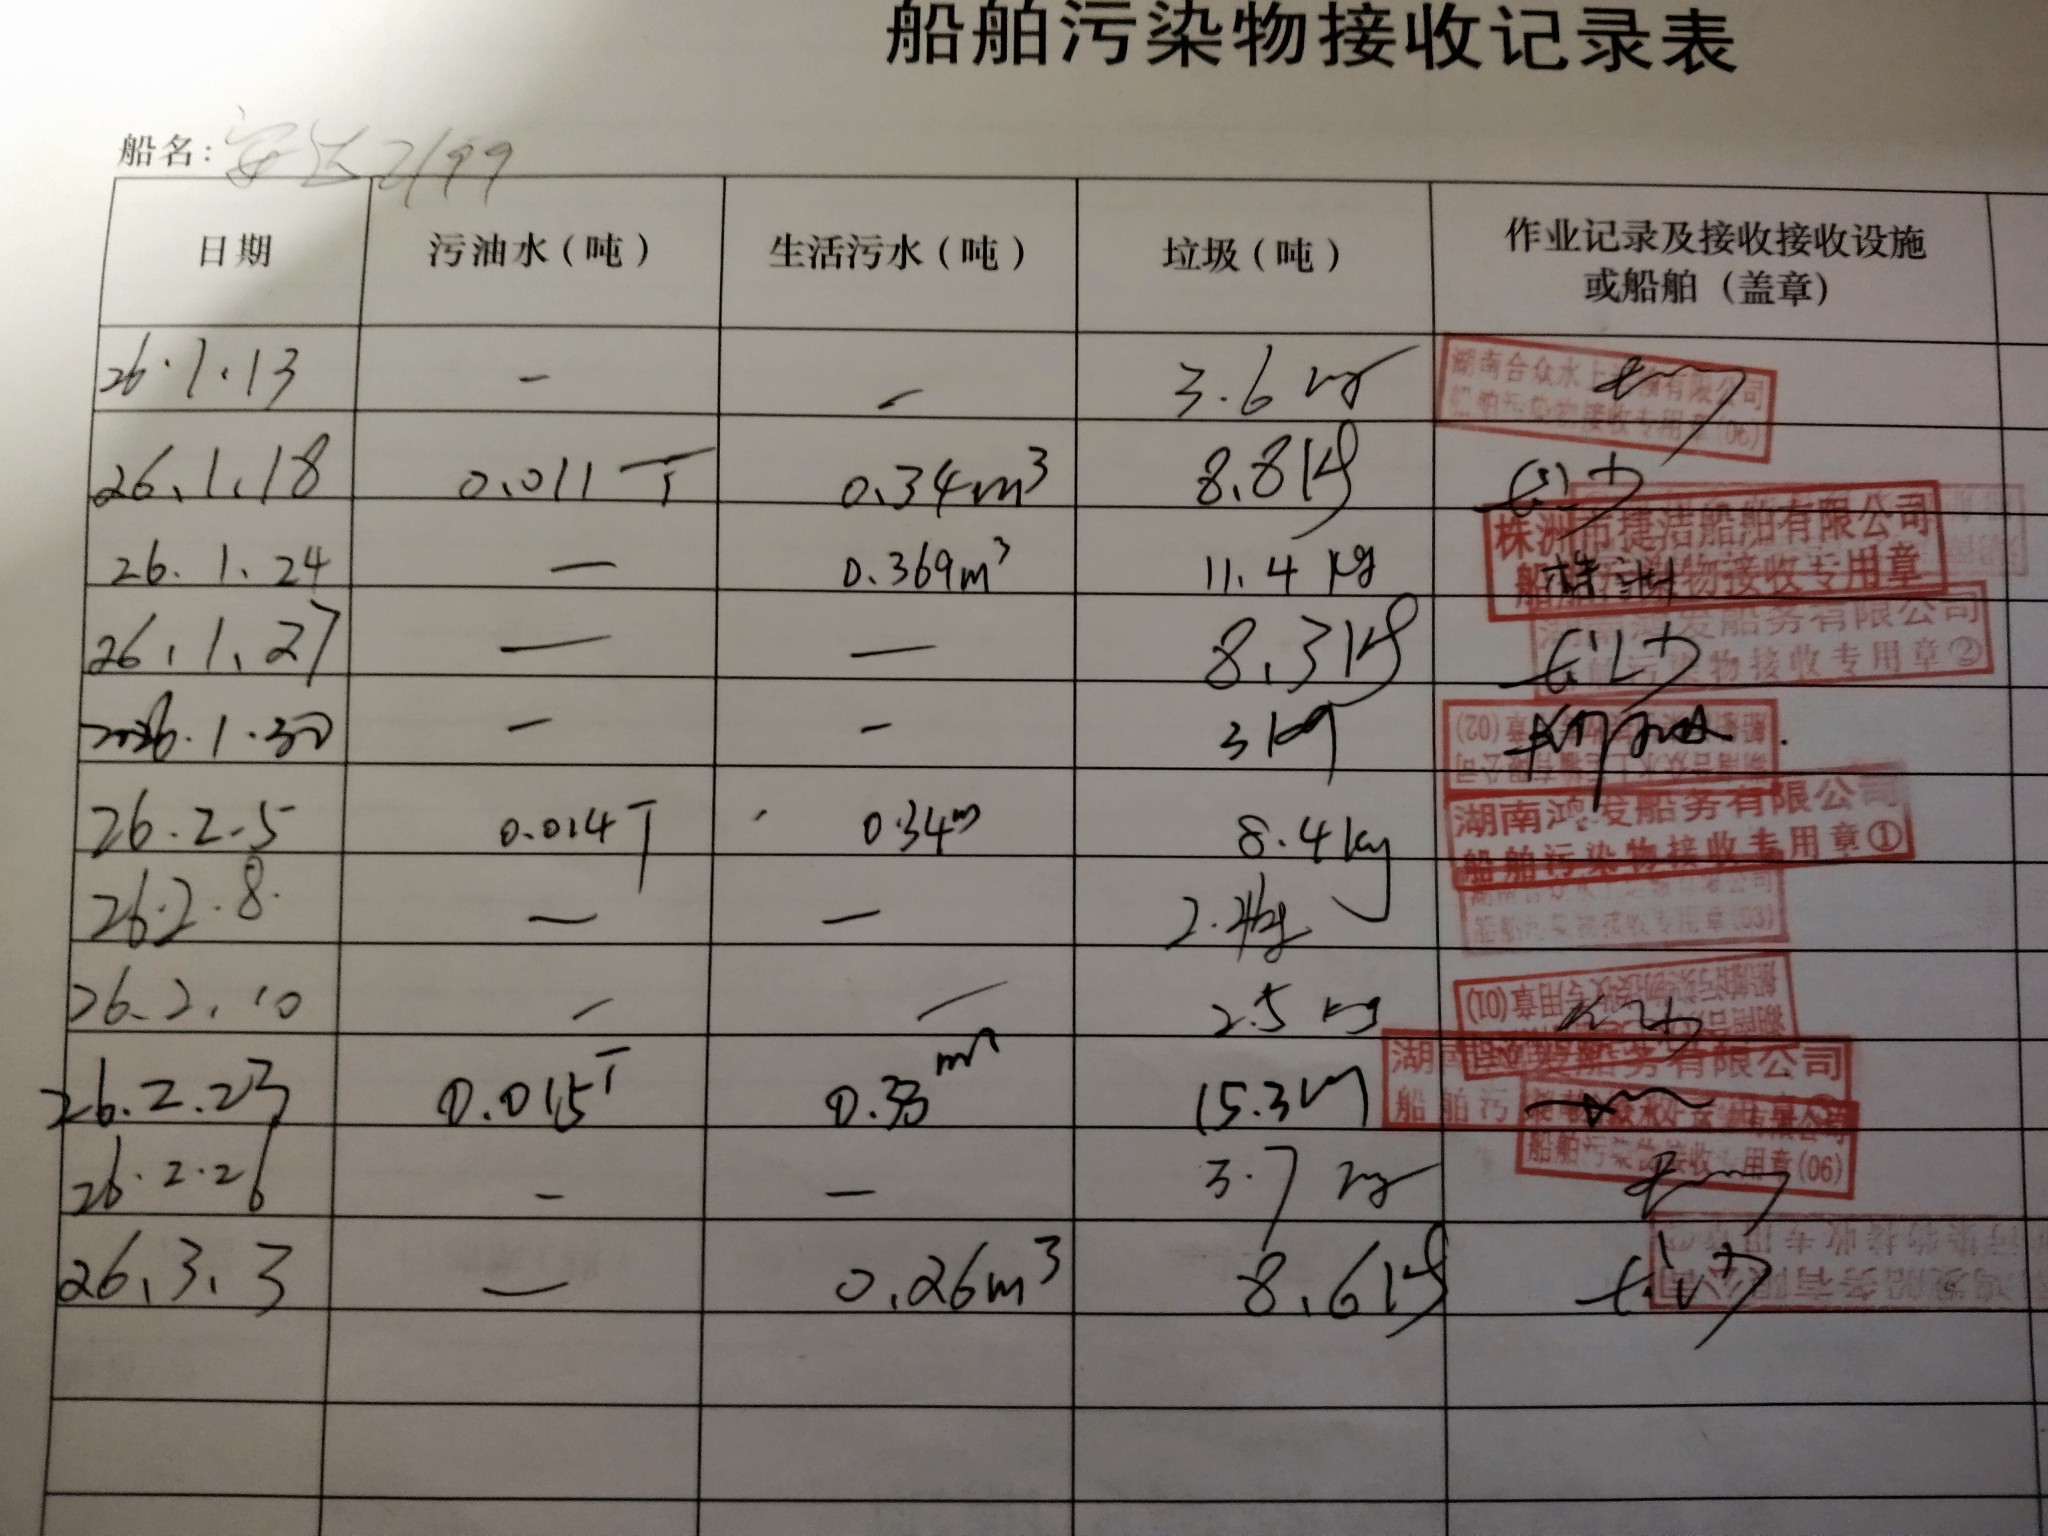 船舶污染物接收记录表
船名: 安达2199
日期 污油水(吨) 生活污水(吨) 垃圾(吨) 作业记录及接收接收设施或船舶(盖章)
26.1.13 - - 3.6 kg 湖南合众水上 有限公司 船舶污染物接收专用章(06)
26.1.18 0.011 T 0.34m³ 8.8kg
26.1.24 — 0.369m³ 11.4 kg 株洲市捷洁船舶有限公司 船舶污染物接收专用章 株洲
26.1.27 — — 8.3kg 湖南鸿发船务有限公司 船舶污染物接收专用章②
2026.1.30 - - 3kg (02)
26.2.5 0.014T 0.34m 8.4kg 湖南鸿发船务有限公司 船舶污染物接收专用章①
26.2.8. — — 船舶污染物接收专用章(03)
26.2.10 - - 2.5 kg 船舶污染物接收专用章(01)
26.2.23 0.015T 0.33 15.3kg 湖南鸿发船务有限公司 船舶污
26.2.26 - — 3.7 kg 有限公司 船舶污染物接收专用章(06)
26.3.3 — 0.26m³ 8.6kg 鸿发船务有限公司 污染物接收专用章